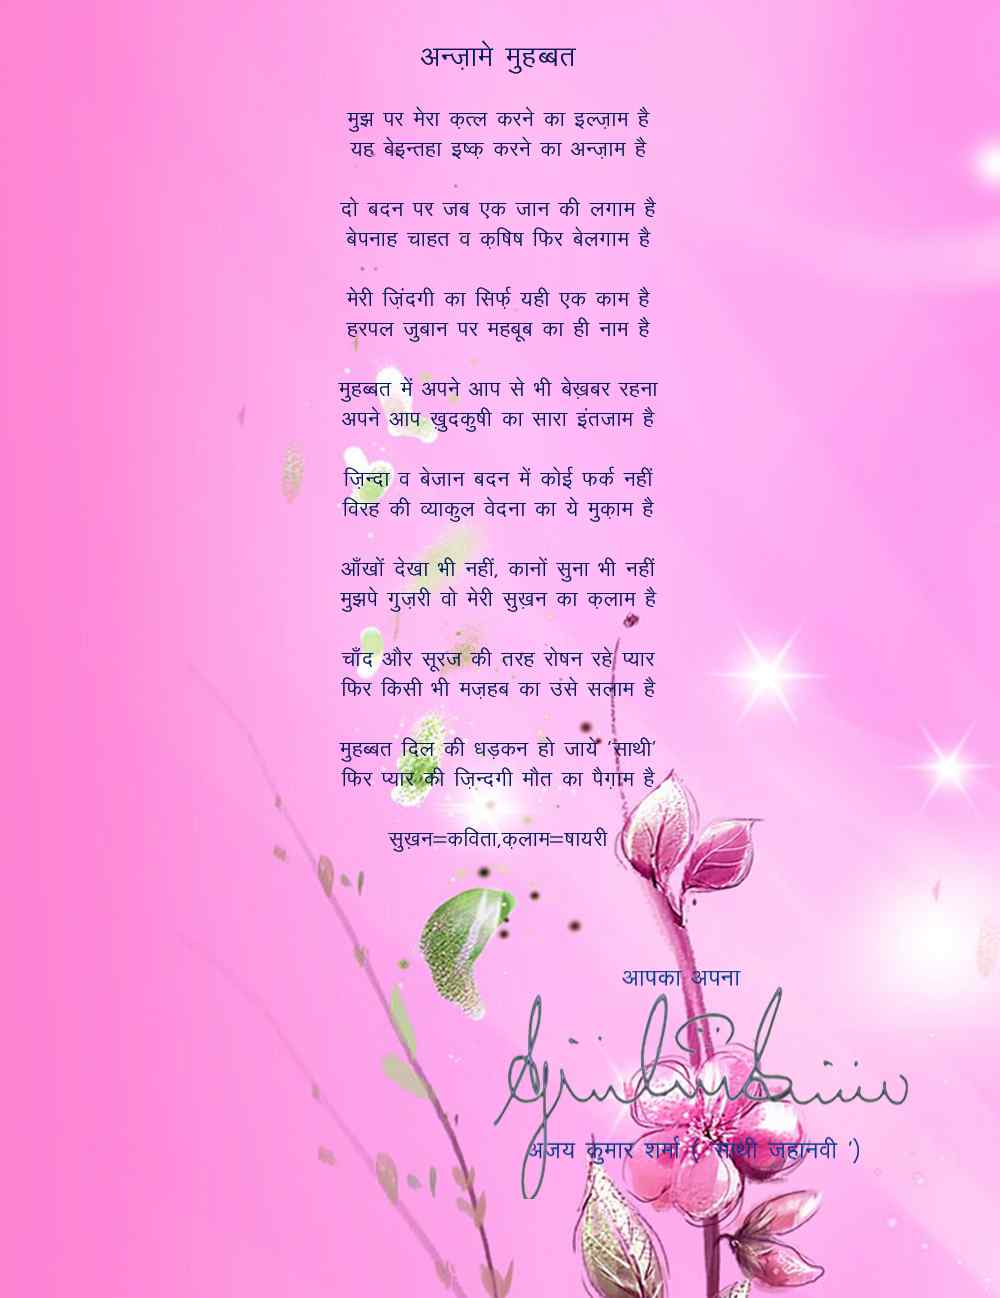 अन्ज़ामे मुहब्बत
मुझ पर मेरा क़त्ल करने का इल्ज़ाम है
यह बेइन्तहा इष्क़ करने का अन्ज़ाम है
दो बदन पर जब एक जान की लगाम है
बेपनाह चाहत व क़षिष फिर बेलगाम है
मेरी ज़िंदगी का सिर्फ़ यही एक काम है
हरपल जु़बान पर महबूब का ही नाम है
मुहब्बत में अपने आप से भी बेख़बर रहना
अपने आप ख़ुदकुषी का सारा इंतजाम है
ज़िन्दा व बेजान बदन में कोई फर्क नहीं
विरह की व्याकुल वेदना का ये मुक़ाम है
आँखों देखा भी नहीं, कानों सुना भी नहीं
मुझपे गुज़री वो मेरी सुख़न का क़लाम है
चाँद और सूरज की तरह रोषन रहे प्यार
फिर किसी भी मज़हब का उसे सलाम है
मुहब्बत दिल की धड़कन हो जाये 'साथी'
फिर प्यार की ज़िन्दगी मौत का पैग़ाम है
सुख़न=कविता,क़लाम=षायरी
आपका अपना
अजय कुमार शर्मा ( 'साथी जहानवी ')